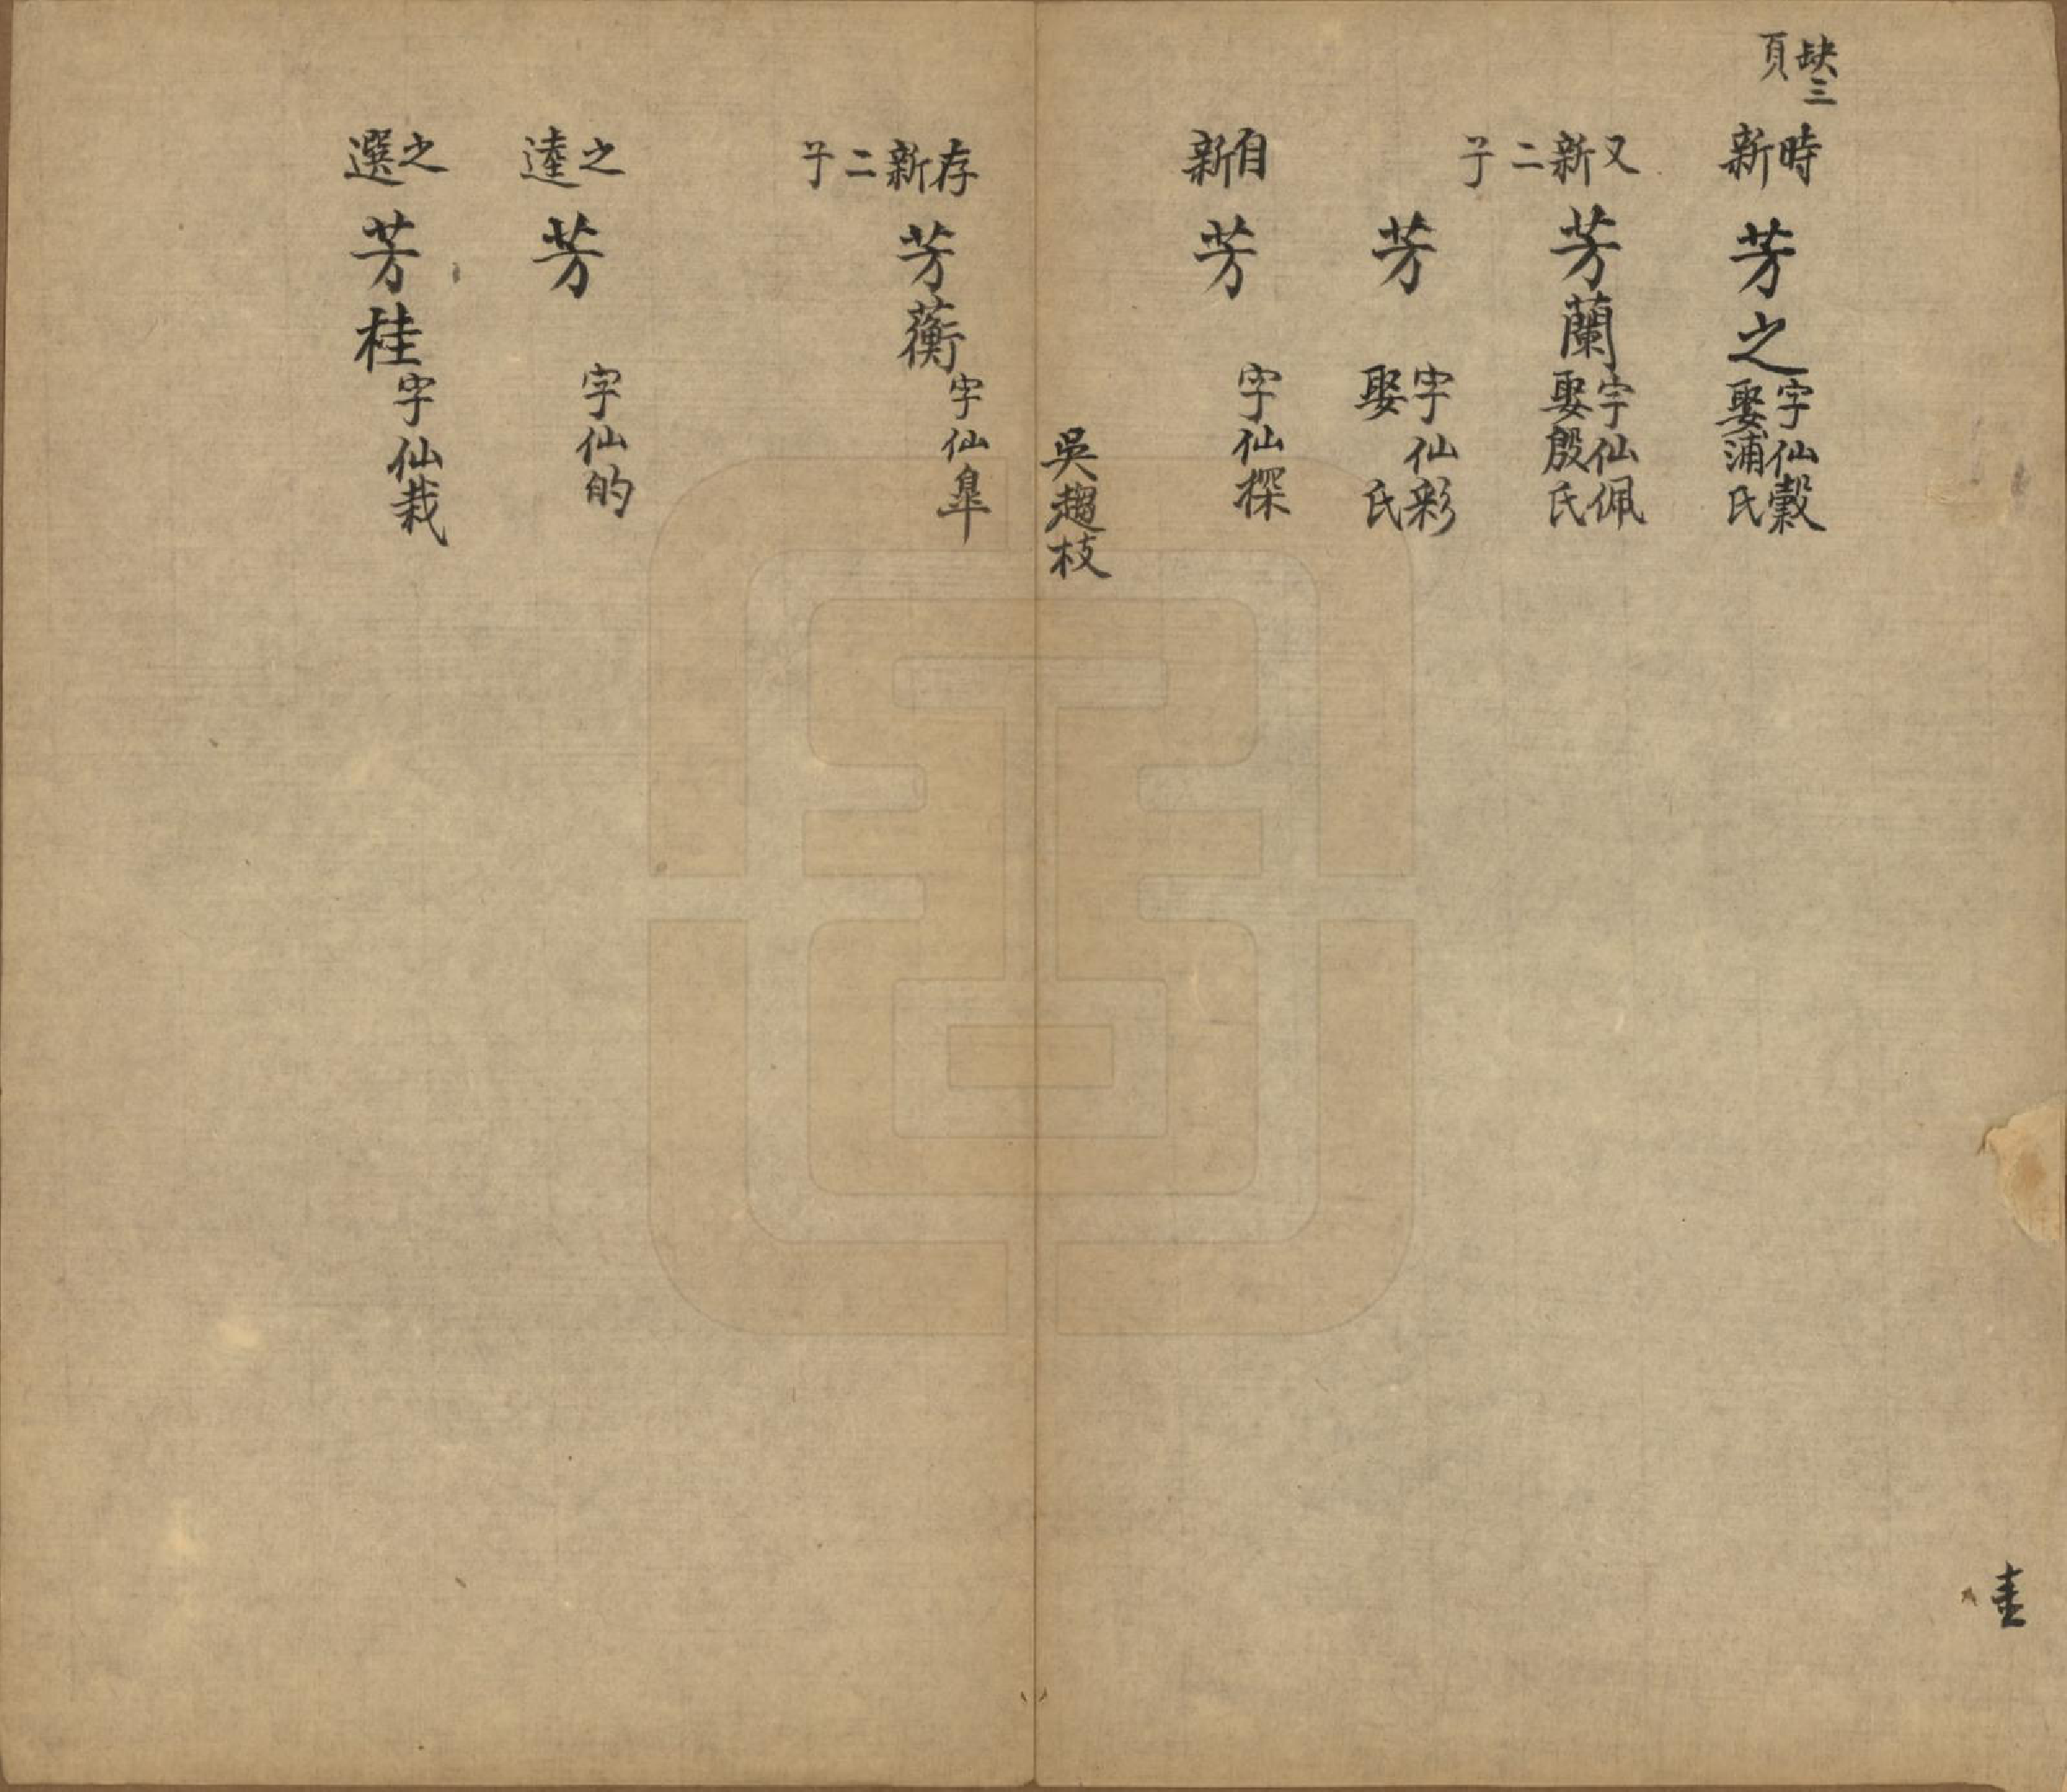 缺三頁
時新
芳之
字仙穀
娶浦氏
又新二子
芳蘭
字仙佩
娶殷氏
芳
字仙彩
娶　氏
自新
芳
字仙探
吳趨枝
存新二子
芳蘅
字仙皐
之逵
芳
字仙的
之選
芳桂
字仙栽